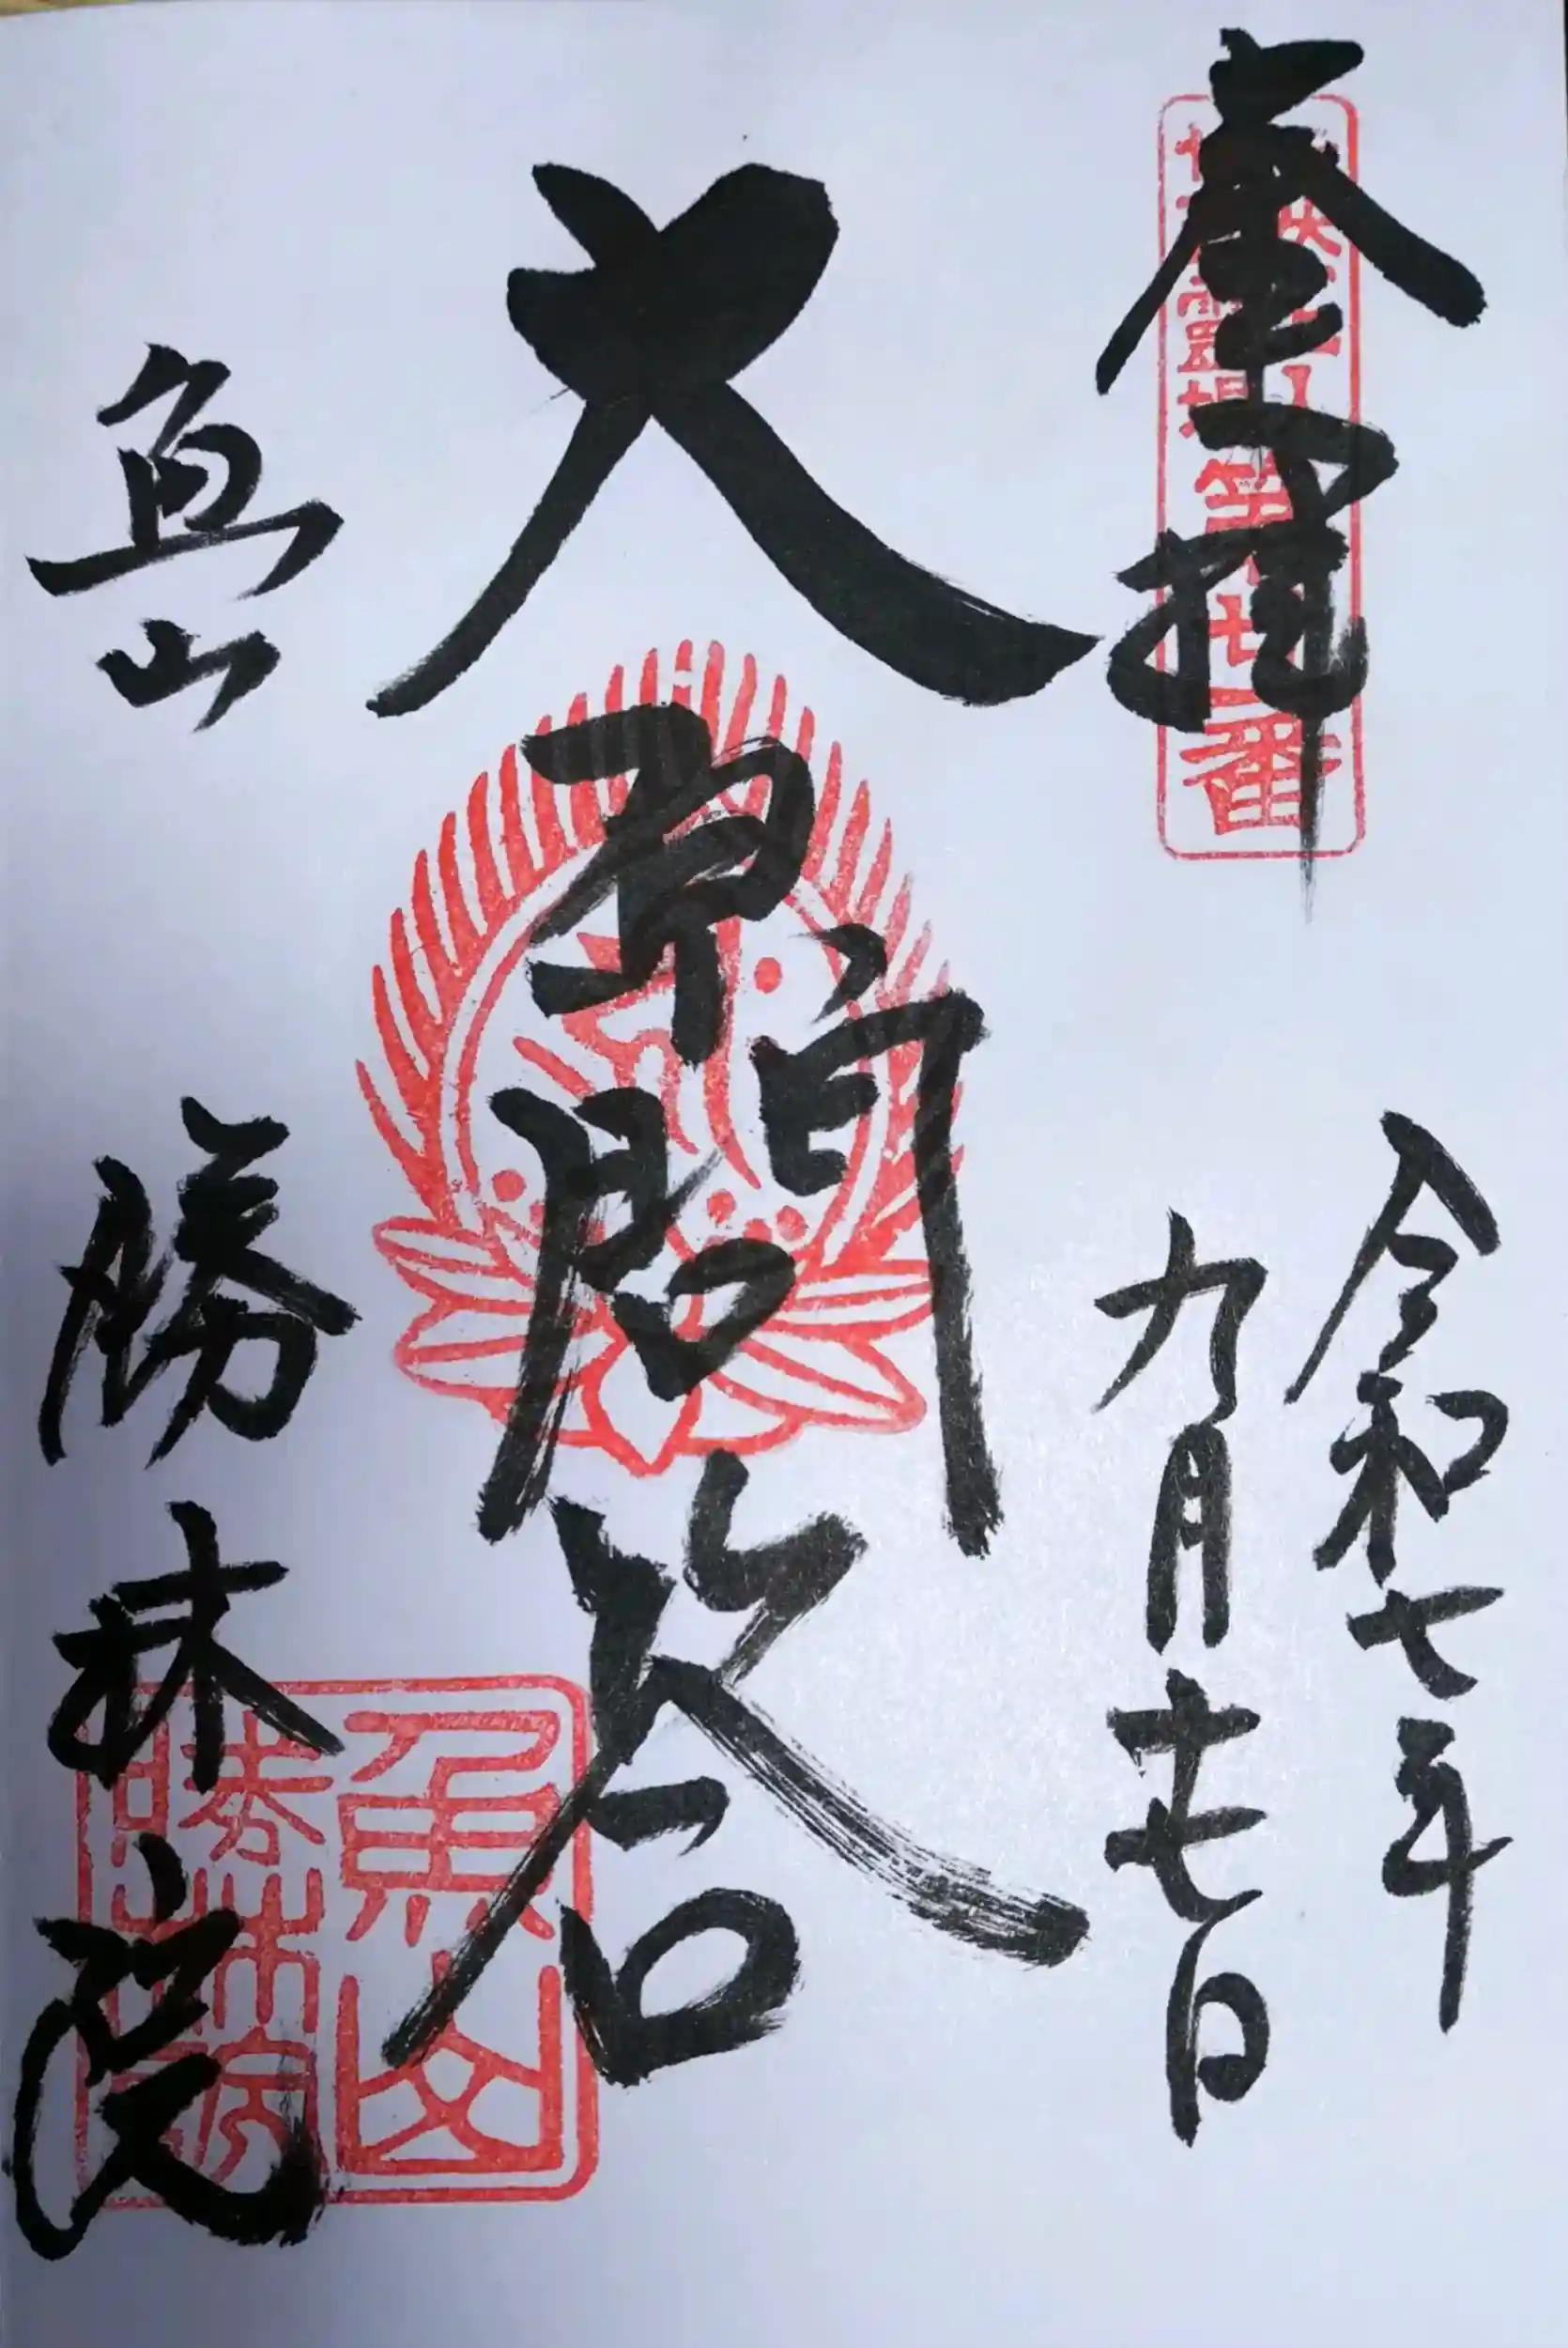 奉拝
第廿一番
令和七年
九月十七日
大原問答
魚山
勝林院
魚山
勝林院